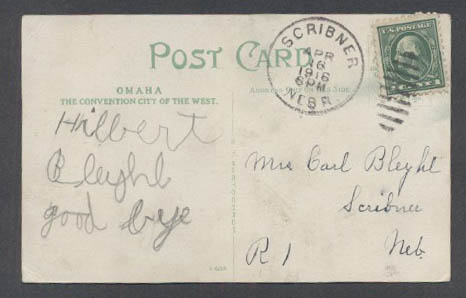 POST CARD
OMAHA
THE CONVENTION CITY OF THE WEST.
ADDRESS ONLY ON THIS SIDE
SCRIBNER
APR
6PM
1916
NEBR.
U.S. POSTAGE
Hilbert
Bleyhl
good bye
Mrs Carl Bleyhl
Scribner
R 1 Neb.